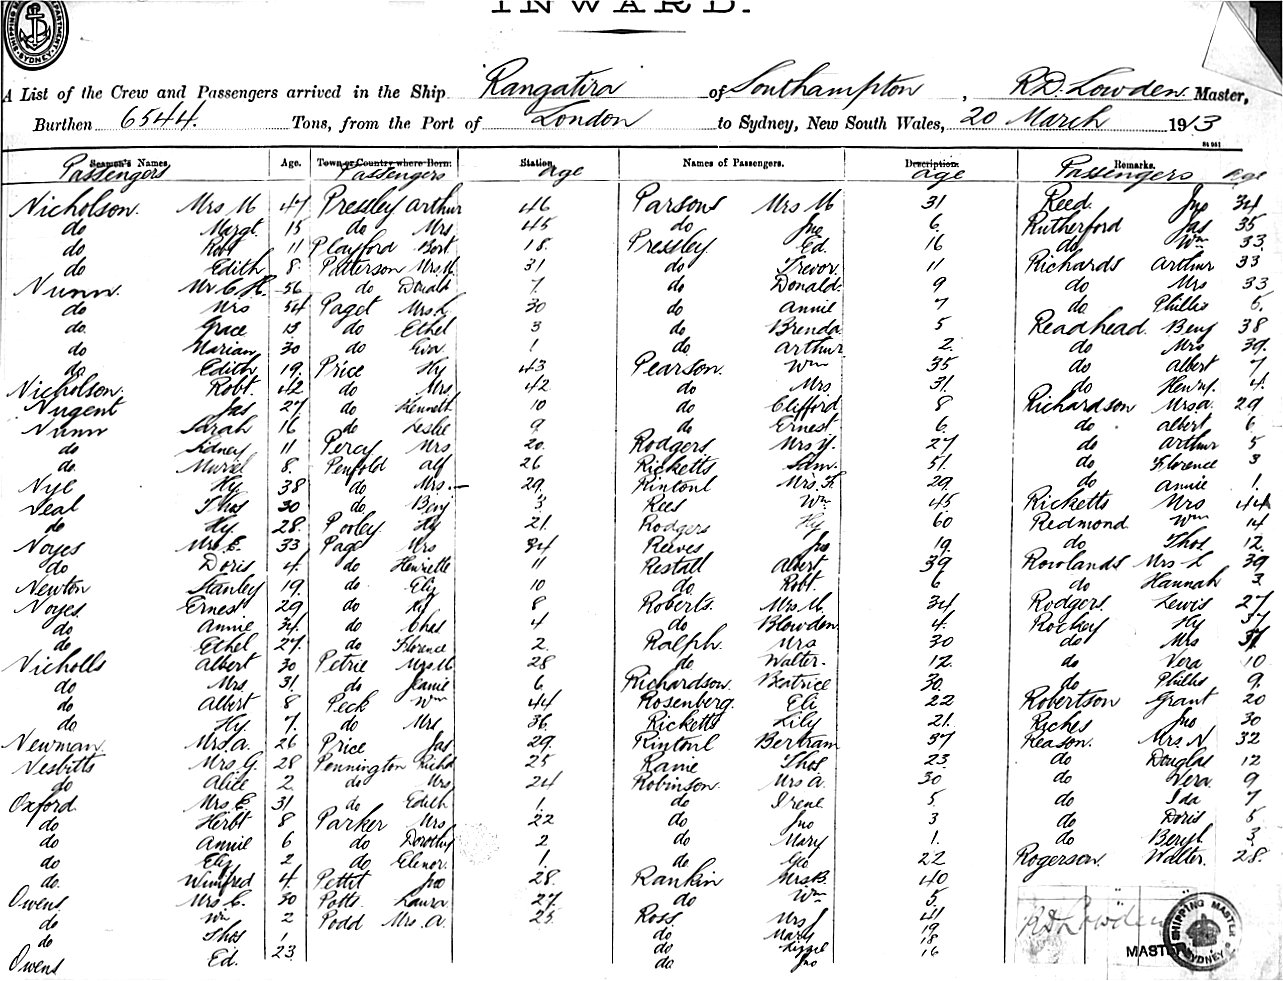 INWARD.
A List of the Crew and Passengers arrived in the Ship Rangatira of Southampton, R.D. Lowden Master,
Burthen 6544. Tons, from the Port of London to Sydney, New South Wales, 20 March 1913
Seamen's Names. Age. Town or Country where Born. Station. Names of Passengers. Description. Remarks.
Passengers Passengers age age Passengers age
Nicholson. Mrs M 47
do Margt. 15
do Robt 11
do Edith 8
Nunn. Mr C. H. 56
do Mrs 54
do. Grace 13
do Marian 30
do Edith 19
Nicholson. Robt. 42
Nugent Jas 27
Nunn Sarah 16
do Sidney 11
do. Muriel 8.
Nye Hy 38
Neal Thos 30
do Hy 28
Noyes Mrs E. 33
do Doris 4.
Newton Stanley 19.
Noyes. Ernest 29
do Annie 34.
do Ethel 27.
Nicholls Albert 30
do Mrs 31.
do Albert 8
do Hy. 7.
Newman. Mrs. A. 26
Nesbitts Mrs. G. 28
do Alice 2
Oxford. Mrs. E. 31
do Herbt 8
do Annie 6
do Eliz 2
do. Winifred 4.
Owens Mrs. C. 30
do Wm 2
do Thos 1
Owens Ed. 23
Pressley Arthur 46
do Mrs 45
Playford Bert. 18.
Patterson Mrs. M. 31
do Donald 7.
Paget Mrs. L. 30
do Ethel 3
do Eva 1
Price Hy 43
do Mrs. 42
do Kenneth 10
do Leslie 9
Percy Mrs 20.
Penfold Alf 26
do Mrs. 29.
do Benj 3
Pooley Hy 21.
Page Mrs 34
do Henriette 11
do Eliz 10
do Hy 8
do Chas 4
do Florence 2.
Petrie Mrs. M. 28
do Jeanie 6
Peck Wm 44
do Mrs 36.
Price Jas 29.
Pennington Richd 25
do Mrs 24
do Edith 1.
Parker Mrs 22
do Dorothy 2
do Elenor. 1.
Pettit Jno 28.
Potts. Laura 27.
Podd Mrs. A. 25
Parsons Mrs M 31
do Jno 6
Pressley. Ed. 16
do Trevor. 11
do Donald. 9
do Annie 7
do Brenda 5
do Arthur 2.
Pearson. Wm 35
do Mrs 31.
do Clifford 8
do Ernest 6
Rodgers. Mrs. Y. 27
Ricketts Sam. 51.
Rintoul Mrs. F. 29.
Rees Wm 45
Rodgers Hy 60
Reeves Jno 19.
Restall Albert 39
do. Robt. 6
Roberts. Mrs. M. 34
do Blowden. 4.
Ralph. Mrs 30
do Walter. 12.
Richardson. Beatrice 30.
Rosenberg. Eli 22
Ricketts Lily 21.
Rintoul Bertram 37
Ranie Thos 23.
Robinson. Mrs A. 30
do Irene 5
do Jno 3
do Mary 1.
do Geo 22
Rankin Mrs. B. 40
do. Wm 5.
Ross. Mrs J 41
do Mary 19
do Lizzie 18
do Jno 16
Reed. Jno 34
Rutherford Jas 35
do Wm 33.
Richards Arthur 33
do Mrs 33
do Phillis 6.
Readhead. Benj 38
do Mrs 39.
do Albert 7
do Henry. 4.
Richardson Mrs A. 29
do Albert 6
do Arthur 5
do Florence 3
do Annie 1.
Ricketts Mrs 44
Redmond Wm 14
do Thos. 12.
Rowlands Mrs. L 39
do Hannah 3.
Rodgers. Lewis 27
Rockey Hy 37
do Mrs 37.
do Vera 10
do Phillis 9.
Robertson Grant 20
Riches Jno 30
Reason. Mrs. N. 32
do Douglas 12
do Vera 9
do Ida 7
do Doris 5
do Beryl. 3
Rogerson. Walter. 28.
R D Lowden
MASTER
SHIPPING MASTER
SYDNEY